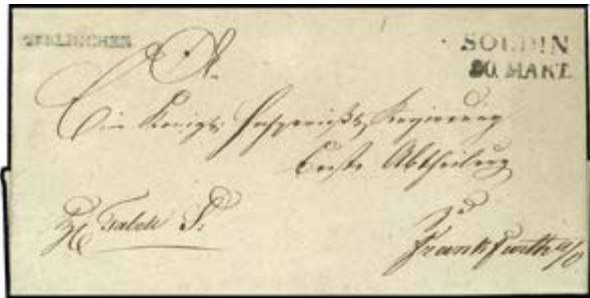 SOLDIN
20. MART.
An
Eine Königl. Hochpreißl. Regierung
Erste Abtheilung
zu
Frankfurth a/O